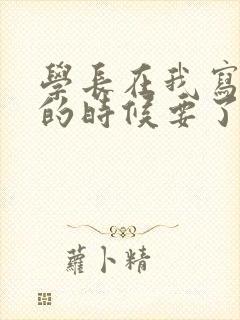 學長在我寫
的時候要了
蘿卜精